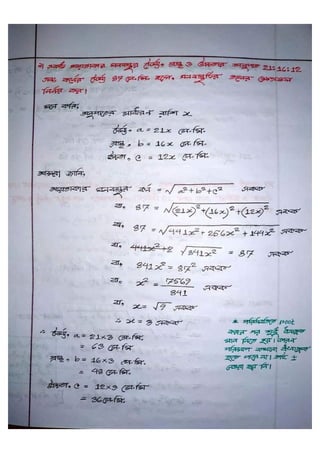 ৭। একটি আয়তাকার ঘনবস্তুর দৈর্ঘ্য, প্রস্থ ও উচ্চতার অনুপাত 21:16:12
এবং কর্ণের দৈর্ঘ্য 87 সে.মি. হলে, ঘনবস্তুটির তলের ক্ষেত্রফল
নির্ণয় কর।
মনে করি,
অনুপাতের সাধারণ রাশি x.
দৈর্ঘ্য, a = 21x সে.মি.
প্রস্থ, b = 16x সে.মি.
উচ্চতা, c = 12x সে.মি.
আমরা জানি,
আয়তাকার ঘনবস্তুর কর্ণ = √a²+b²+c² একক
বা, 87 = √(21x)²+(16x)²+(12x)² একক
বা, 87 = √441x²+256x²+144x² একক
বা, √841x² = 87 একক
বা, 841x² = 87² একক
বা, x² = 7569/841 একক
বা, x = √9 একক
∴ x = 3 একক
∴ দৈর্ঘ্য, a = 21×3 সে.মি.
= 63 সে.মি.
প্রস্থ, b = 16×3 সে.মি.
= 48 সে.মি.
উচ্চতা, c = 12×3 সে.মি.
= 36 সে.মি.
root
±